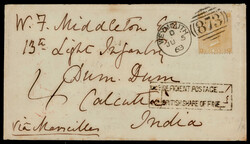 W. F. Middleton
13th Light Infantry
Dum Dum
Calcutta
India
Via Marseilles
873
JU 5
INSUFFICIENT POSTAGE
BRITISH SHARE OF FINE